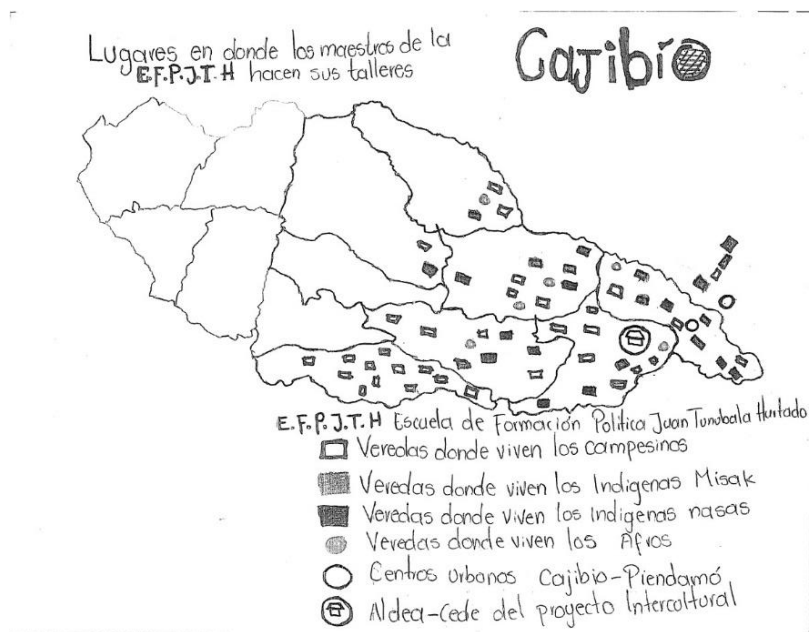 Lugares en donde los maestros de la
E.F.P.J.T.H hacen sus talleres
Cajibío
E.F.P.J.T.H Escuela de Formación Política Juan Tunubala Hurtado
Veredas donde viven los campesinos
Veredas donde viven los Indigenas Misak
Veredas donde viven los indigenas nasas
Veredas donde viven los Afros
Centros urbanos Cajibio-Piendamó
Aldea-Cede del proyecto Intercultural